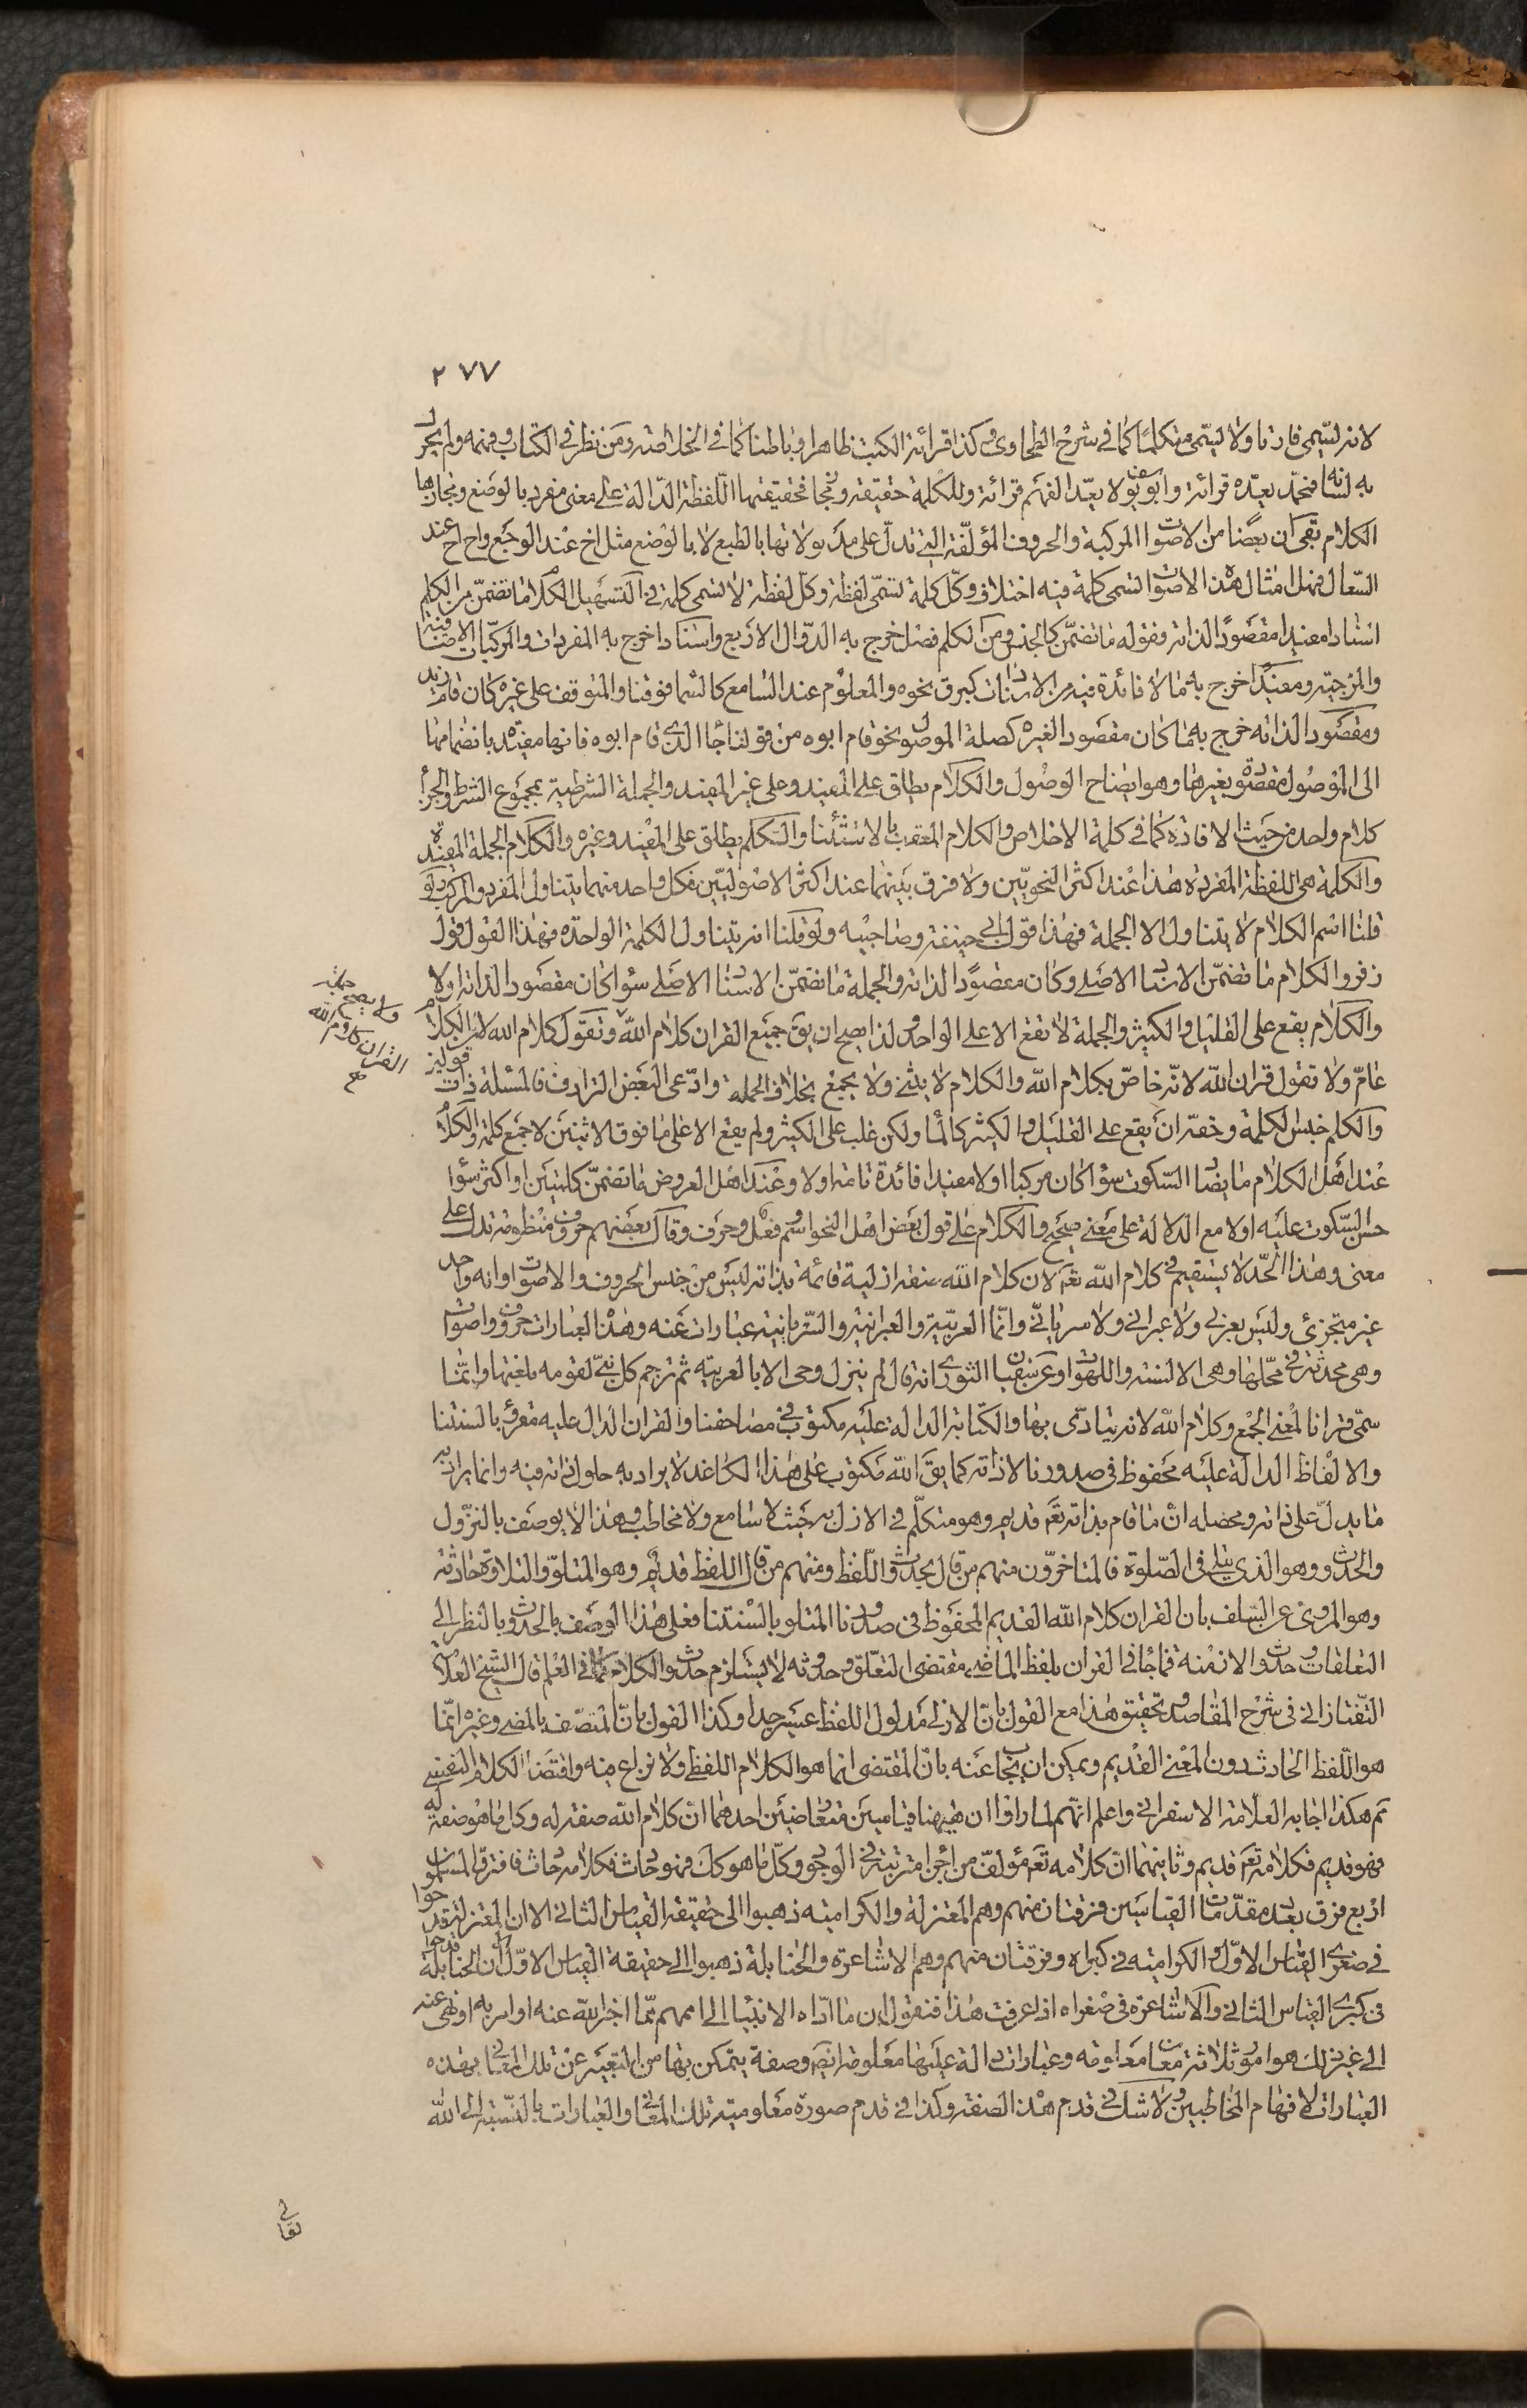 ٢٧٧
لانه ليسمى قارئا ولا ليسمى متكلما كما في شرح الطحاوى وكذا قرائة الكتب ظاهرا وباطنا كما في الخلاصة ومن نظر في الكتاب وفهمه ولم يجر
به لسانه فمحمد يعده قرائة وابو يوسف لا يعد الفهم قرائة وللكلمة حقيقة ومجاز فحقيقتها اللفظة الدالة على معنى مفرد بالوضع ومجازها
الكلام بقى ان بعضا من الاصوات المركبة والحروف المؤلفة التي تدل على مدلولاتها بالطبع لا بالوضع مثل اخ عند الوجع واح اح عند
السعال فهل امثال هذه الاصوات تسمى كلمة فيه اختلاف وكل كلمة تسمى لفظة وكل لفظة لا تسمى كلمة في التسهيل الكلام ما تضمن من الكلم
اسنادا مفيدا مقصودا لذاته فقوله ما تضمن كالجنس ومن الكلم فصل اخرج به الدوال الاربع واسنادا اخرج به المفردات والمركبات الاضافية
والمزجية ومفيدا اخرج به ما لا فائدة فيه من الاسنادات كبرق نحوه والمعلوم عند السامع كالسما فوقنا والمتوقف على غيره كان قام زيد
ومقصودا لذاته خرج به ما كان مقصودا لغيره كصلة الموصول نحو قام ابوه من قولنا جا الذي قام ابوه فانها مفيدة بانضمامها
الى الموصول مقصودة بغيرها وهو ايضاح الوصول والكلام يطلق على المفيد وعلى غير المفيد والجملة الشرطية بمجموع الشرط والجزا
كلام واحد من حيث الافادة كما في كلمة الاخلاص والكلام المعقب بالاستثنا والتكلم يطلق على المفيد وغيره والكلام الجملة المفيدة
والكلمة هي اللفظة المفردة هذا عند اكثر النحويين ولا فرق بينهما عند اكثر الاصوليين فكل واحد منهما يتناول المفرد والمركب ولو
قلنا اسم الكلام لا يتناول الا الجملة فهذا قول ابي حنيفة وصاحبيه ولو قلنا انه يتناول الكلمة الواحدة فهذا القول قول
زفر والكلام ما تضمن الاسناد الاصلى وكان مقصودا لذاته والجملة ما تضمن الاسناد الاصلى سوا كان مقصودا لذاته او لا
والكلام يقع على القليل والكثير والجملة لا تقع الا على الواحد ولذا يصح ان يق جميع القران كلام الله وتقول كلام الله لان الكلام
عام ولا تقول قران الله لانه خاص بكلام الله والكلام لا يثنى ولا يجمع بخلاف الجمله وادعى البعض الترادف فالمسئلة ذات قولين
ولا يصح جملة
القران كلام الله
صح
والكلم جنس لكلمة وحقه ان يقع على القليل والكثير كالما ولكن غلب على الكثير ولم يقع الا على ما فوق الاثنين لا جمع كلمة والكلام
عند اهل الكلام ما يضاد السكوت سوا كان مركبا او لا مفيدا فائدة تامة او لا وعند اهل العروض ما تضمن كلمتين او اكثر سوا
حسن السكوت عليه او لا مع الدلالة على معنى صحيح والكلام على قول بعض اهل النحو اسم وفعل وحرف وقال بعضهم حروف منظومة تدل على
معنى وهذا الحد لا يستقيم في كلام الله تعم لان كلام الله صفة ازلية قائمة بذاته ليس من جنس الحروف والاصوات وانه واحد
غير متجزئ وليس بعربي ولا عبراني ولا سرياني وانما العربية والعبرانية والسريانية عبارات عنه وهذه العبارات حروف واصوات
وهي محدثة في محالها وهي الالسنة واللهوات وعن سفيان الثوري انه قال لم ينزل وحى الا بالعربية ثم ترجم كل نبي لقومه بلغتها وانما
سمى قرانا لمعنى الجمع وكلام الله لانه يتادى بها والكتابة الدالة عليه مكتوب في مصاحفنا والقران الدال عليه مقرو بالسنتنا
والالفاظ الدالة عليه محفوظ في صدورنا لا ذاته كما يق الله مكتوب على هذا الكاغد لا يراد به حلول ذاته فيه وانما يراد به
ما يدل على ذاته ومحصله ان ما قام بذاته تعم قديم وهو متكلم في الازل به حيث لا سامع ولا مخاطب وهذا لا يوصف بالنزول
والحدوث وهو الذي يتلى في الصلوة فالمتاخرون منهم من قال بحدوث اللفظ ومنهم من قال اللفظ قديم وهو المتلو والتلاوة حادثة
وهو المروى عن السلف بان القران كلام الله القديم المحفوظ في صدورنا المتلو بالسنتنا فعلى هذا الوصف بالحدوث بالنظر الى
التعلقات وحدوث الازمنة فما جا في القران بلفظ الماضي مقتضى التعلق وحدوثه لا يستلزم حدوث الكلام كما في العلم قال الشيخ العلامة
التفتازاني في شرح المقاصد وتحقيق هذا مع القول بان الازلي مدلول اللفظ عسير جدا وكذا القول بان المتصف بالمضي وغيره انما
هو اللفظ الحادث دون المعنى القديم ويمكن ان يجاب عنه بان المقتضى انما هو الكلام اللفظي ولا نزاع فيه واقتضا الكلام النفسي
ثم هكذا اجابه العلامة الاسفرايني واعلم انهم لما راوا ان ههنا قياسين متعارضين احدهما ان كلام الله صفة له وكل ما هو صفة له
فهو قديم فكلامه تعم قديم وثانيهما ان كلامه تعم مؤلف من اجزا مترتبة في الوجود وكل ما هو كك فهو حادث فكلامه حادث فافترق المسلمون
اربع فرق بعدد مقدمات القياسين ففرقتان منهم وهم المعتزلة والكرامية ذهبوا الى حقيقة القياس الثاني الا ان المعتزلة قدحوا
في صغرى القياس الاول والكرامية في كبراه وفرقتان منهم وهم الاشاعرة والحنابلة ذهبوا الى حقيقة القياس الاول الا ان الحنابلة قدحوا
في كبرى القياس الثاني والاشاعرة في صغراه اذا عرفت هذا فنقول ان ما اداه الانبيا الى اممهم مما اخبر الله عنه او امر به او نهى عنه
الى غير ذلك هو امور ثلاثة معان معلومة وعبارات دالة عليها معلومة ايضا وصفة يتمكن بها من التعبير عن تلك المعاني بهذه
العبارات لافهام المخاطبين ولا شك في قدم هذه الصفة وكذا في قدم صورة معلومية تلك المعاني والعبارات بالنسبة الى الله
تعالى